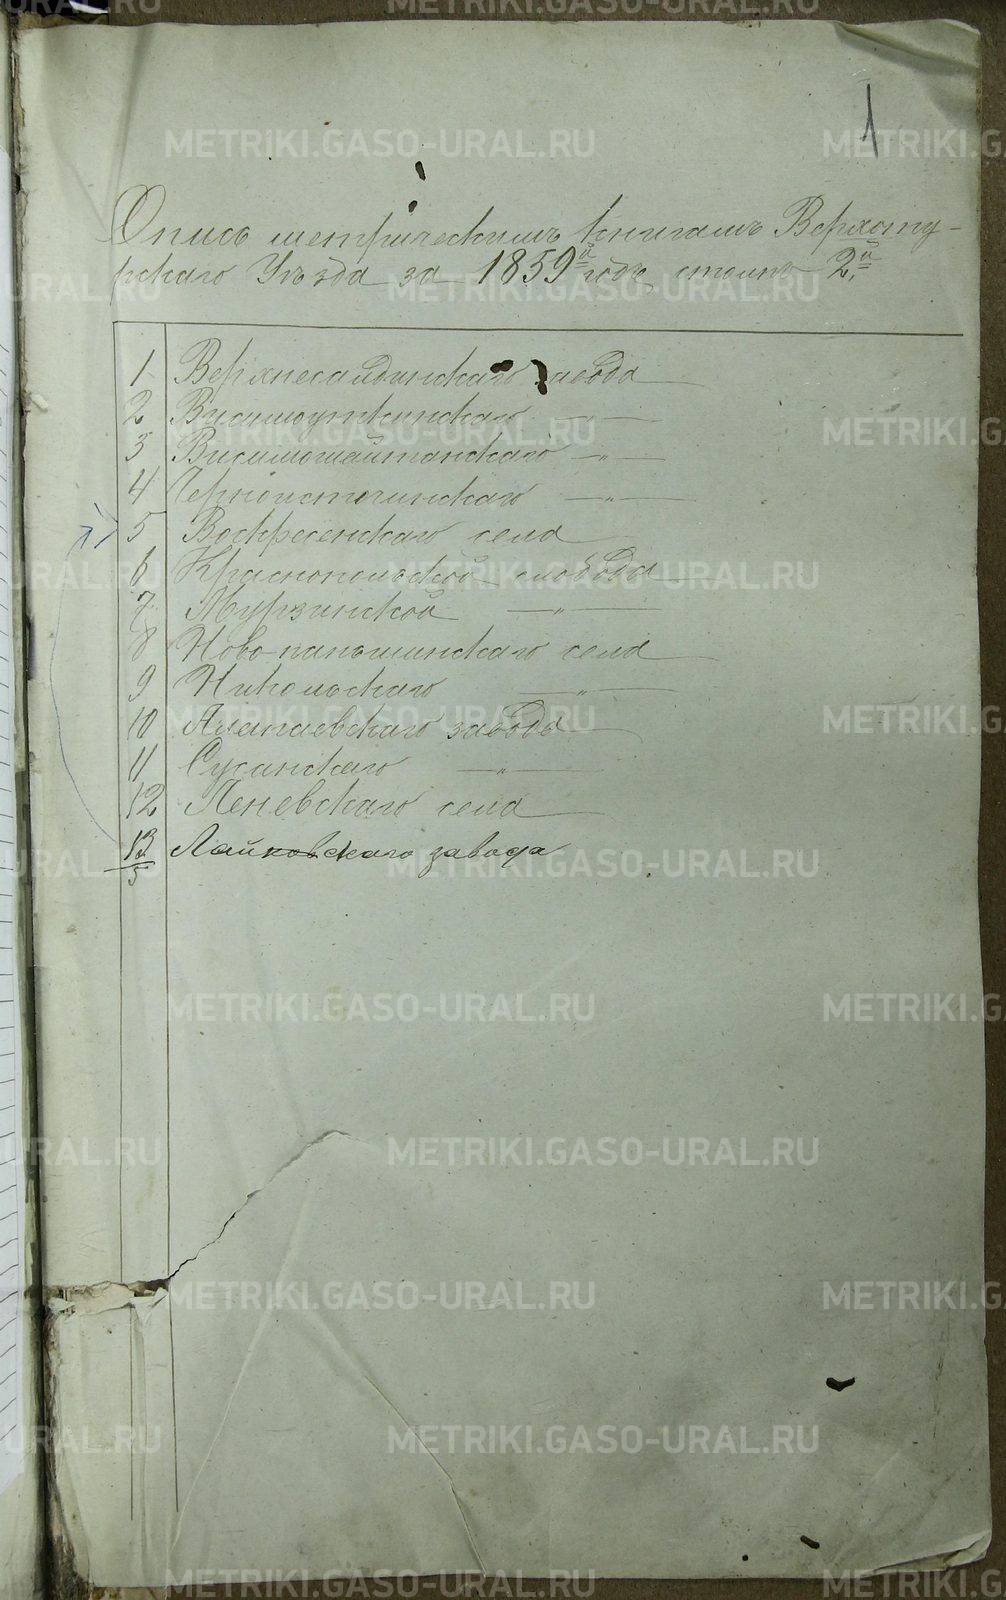 1
Опись метрическимъ книгамъ Верхоту-
рскаго Уѣзда за 1859й годъ, столпъ 2й
1 Верхнесалдинскаго завода
2 Висимоуткинскаго — „ —
3 Висимошайтанскаго — „ —
4 Черноисточинскаго — „ —
5 Воскресенскаго села
6 Краснопольской слободы
7 Мурзинской — „ —
8 Новопаньшинскаго села
9 Никольскаго — „ —
10 Алапаевскаго завода
11 Сусанскаго — „ —
12 Леневскаго села
13 Лайковскаго завода
5
METRIKI.GASO-URAL.RU